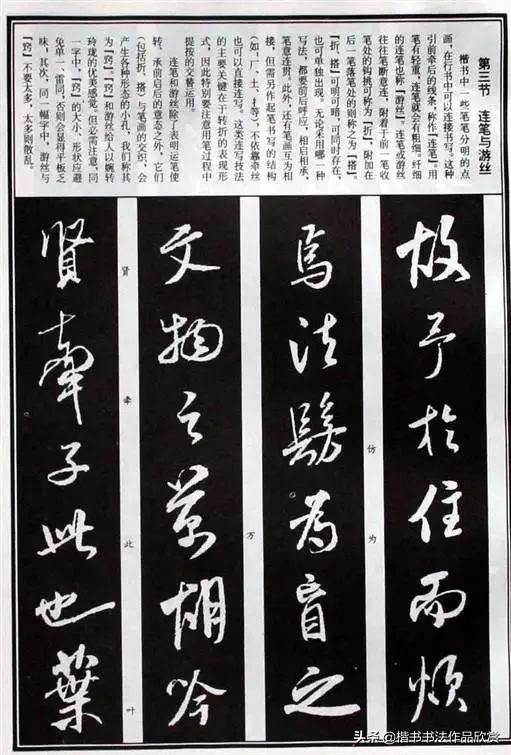 第三节　连笔与游丝
楷书中一些笔笔分明的点
画，在行书中可以连接书写。这种
引前牵后的线条，称作“连笔”。用
笔有轻重，连笔就会有粗细，纤细
的连笔也称“游丝”。连笔或游丝
往往笔断意连，附着于前一笔收
笔处的钩挑可称为“折”，附加在
后一笔落笔处的则称之为“搭”。
“折、搭”可明可暗，可同时存在，
也可单独出现。无论采用哪一种
写法，都要前后呼应，相启相承，
笔意连贯。此外，还有笔画互为相
接，但需另作起笔书写的结构
（如，厂、土、扌等），不依靠牵丝
也可以直接连写。这类连写技法
的主要关键在于转折的表现形
式，因此特别要注意用笔过程中
提按的交替运用。
连笔和游丝除了表明运笔使
转、承前启后的意态之外，它们
（包括折、搭）与笔画的交织，会
产生各种形态的小孔，我们称其
为“窍”。“窍”和游丝给人以婉转
玲珑的优美感觉。但必需注意，同
一字中，“窍”的大小、形状应避
免单一、雷同，否则会显得平板乏
味，其次，同一幅字中，游丝与
“窍”不要太多，太多则散乱。
故予於住而烦
焉法髣为盲之
仿
为
文物之万胡吟
万
贤牵子此也葉
贤
牵
此
叶
头条@楷书书法作品欣赏